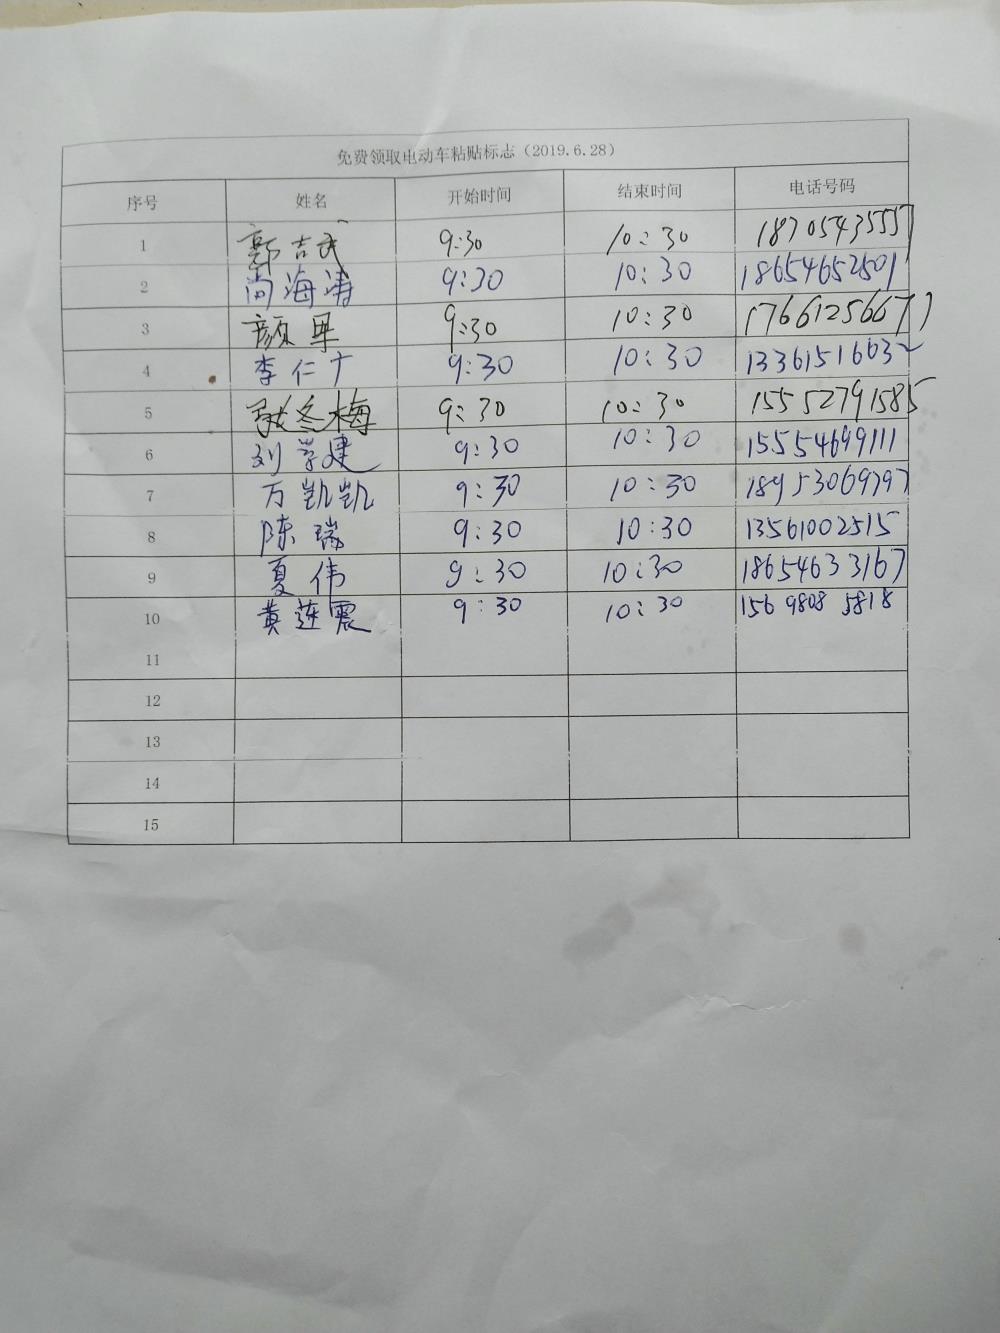 免费领取电动车粘贴标志（2019.6.28）
序号 姓名 开始时间 结束时间 电话号码
1 郭吉武 9:30 10:30 18705435557
2 尚海涛 9:30 10:30 18654652501
3 颜果 9:30 10:30 17661256677
4 李仁广 9:30 10:30 1336151663
5 冬梅 9:30 10:30 15552791585
6 刘学建 9:30 10:30 15554699111
7 万凯凯 9:30 10:30 18953069797
8 陈瑞 9:30 10:30 13561002515
9 夏伟 9:30 10:30 18654633167
10 黄莲震 9:30 10:30 156 9808 5818
11
12
13
14
15